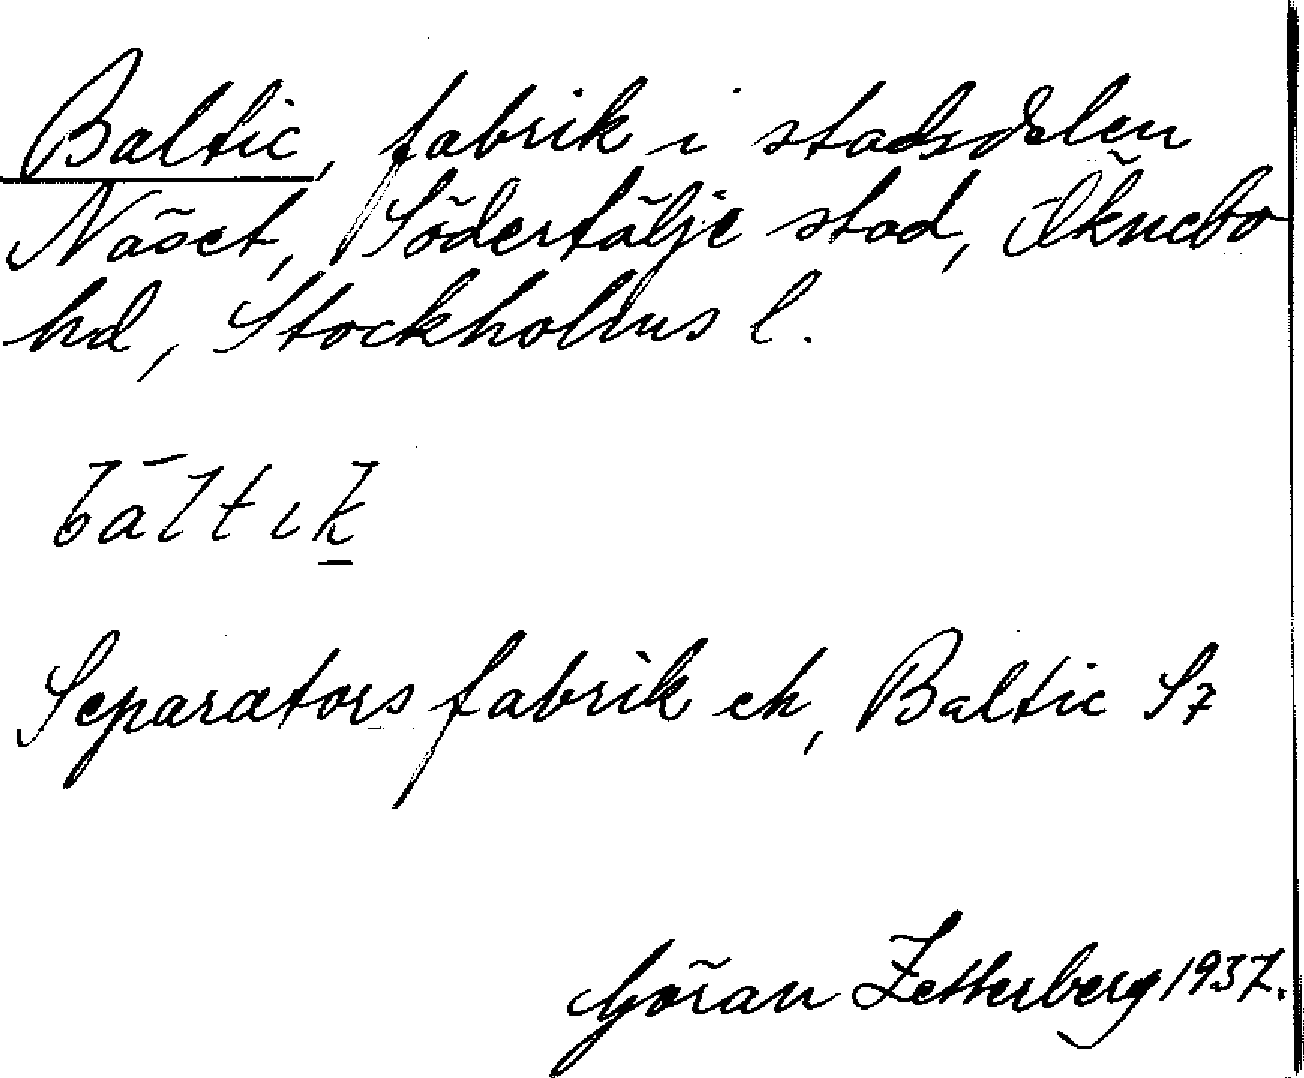 Baltic, fabrik i stadsdelen
Näset, Södertälje stad, Öknebo
hd, Stockholms l.
bàltik
Separators fabrik ek, Baltic S7
Göran Zetterberg 1937.